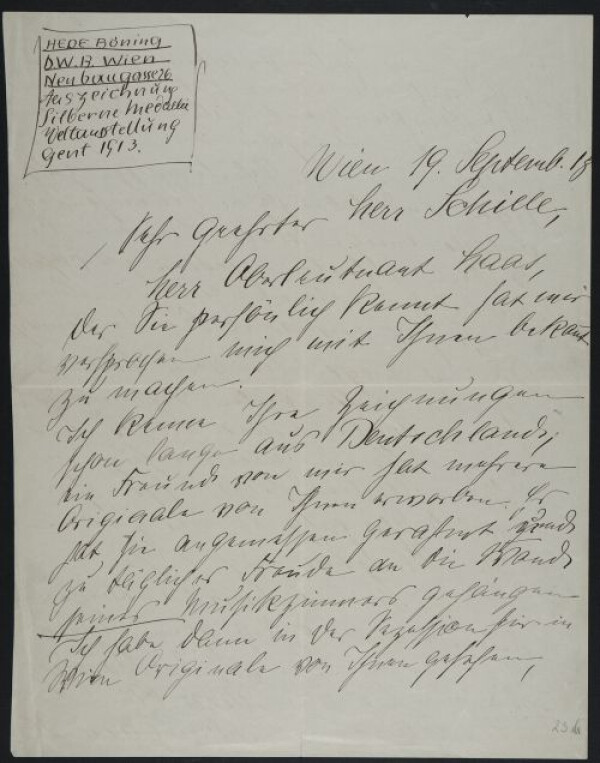 HEDE Böning
D.W.B. Wien
Neubaugasse 26
Auszeichnung
Silberne Medaille
Weltausstellung
Gent 1913.
Wien 19. Septemb. 18
Sehr Geehrter Herr Schiele,
Herr Oberleutnant Haas,
der Sie persönlich kennt hat mir
versprochen mich mit Ihnen bekannt
zu machen.
Ich kenne Ihre Zeichnungen
schon lange aus Deutschland;
ein Freund von mir hat mehrere
Originale von Ihnen erworben. Er
hat sie angemessen gerahmt und
zu täglicher Freude an die Wand
seines Musikzimmers gehangen
Ich habe dann in der Sezession hier in
Wien Originale von Ihnen gesehen,